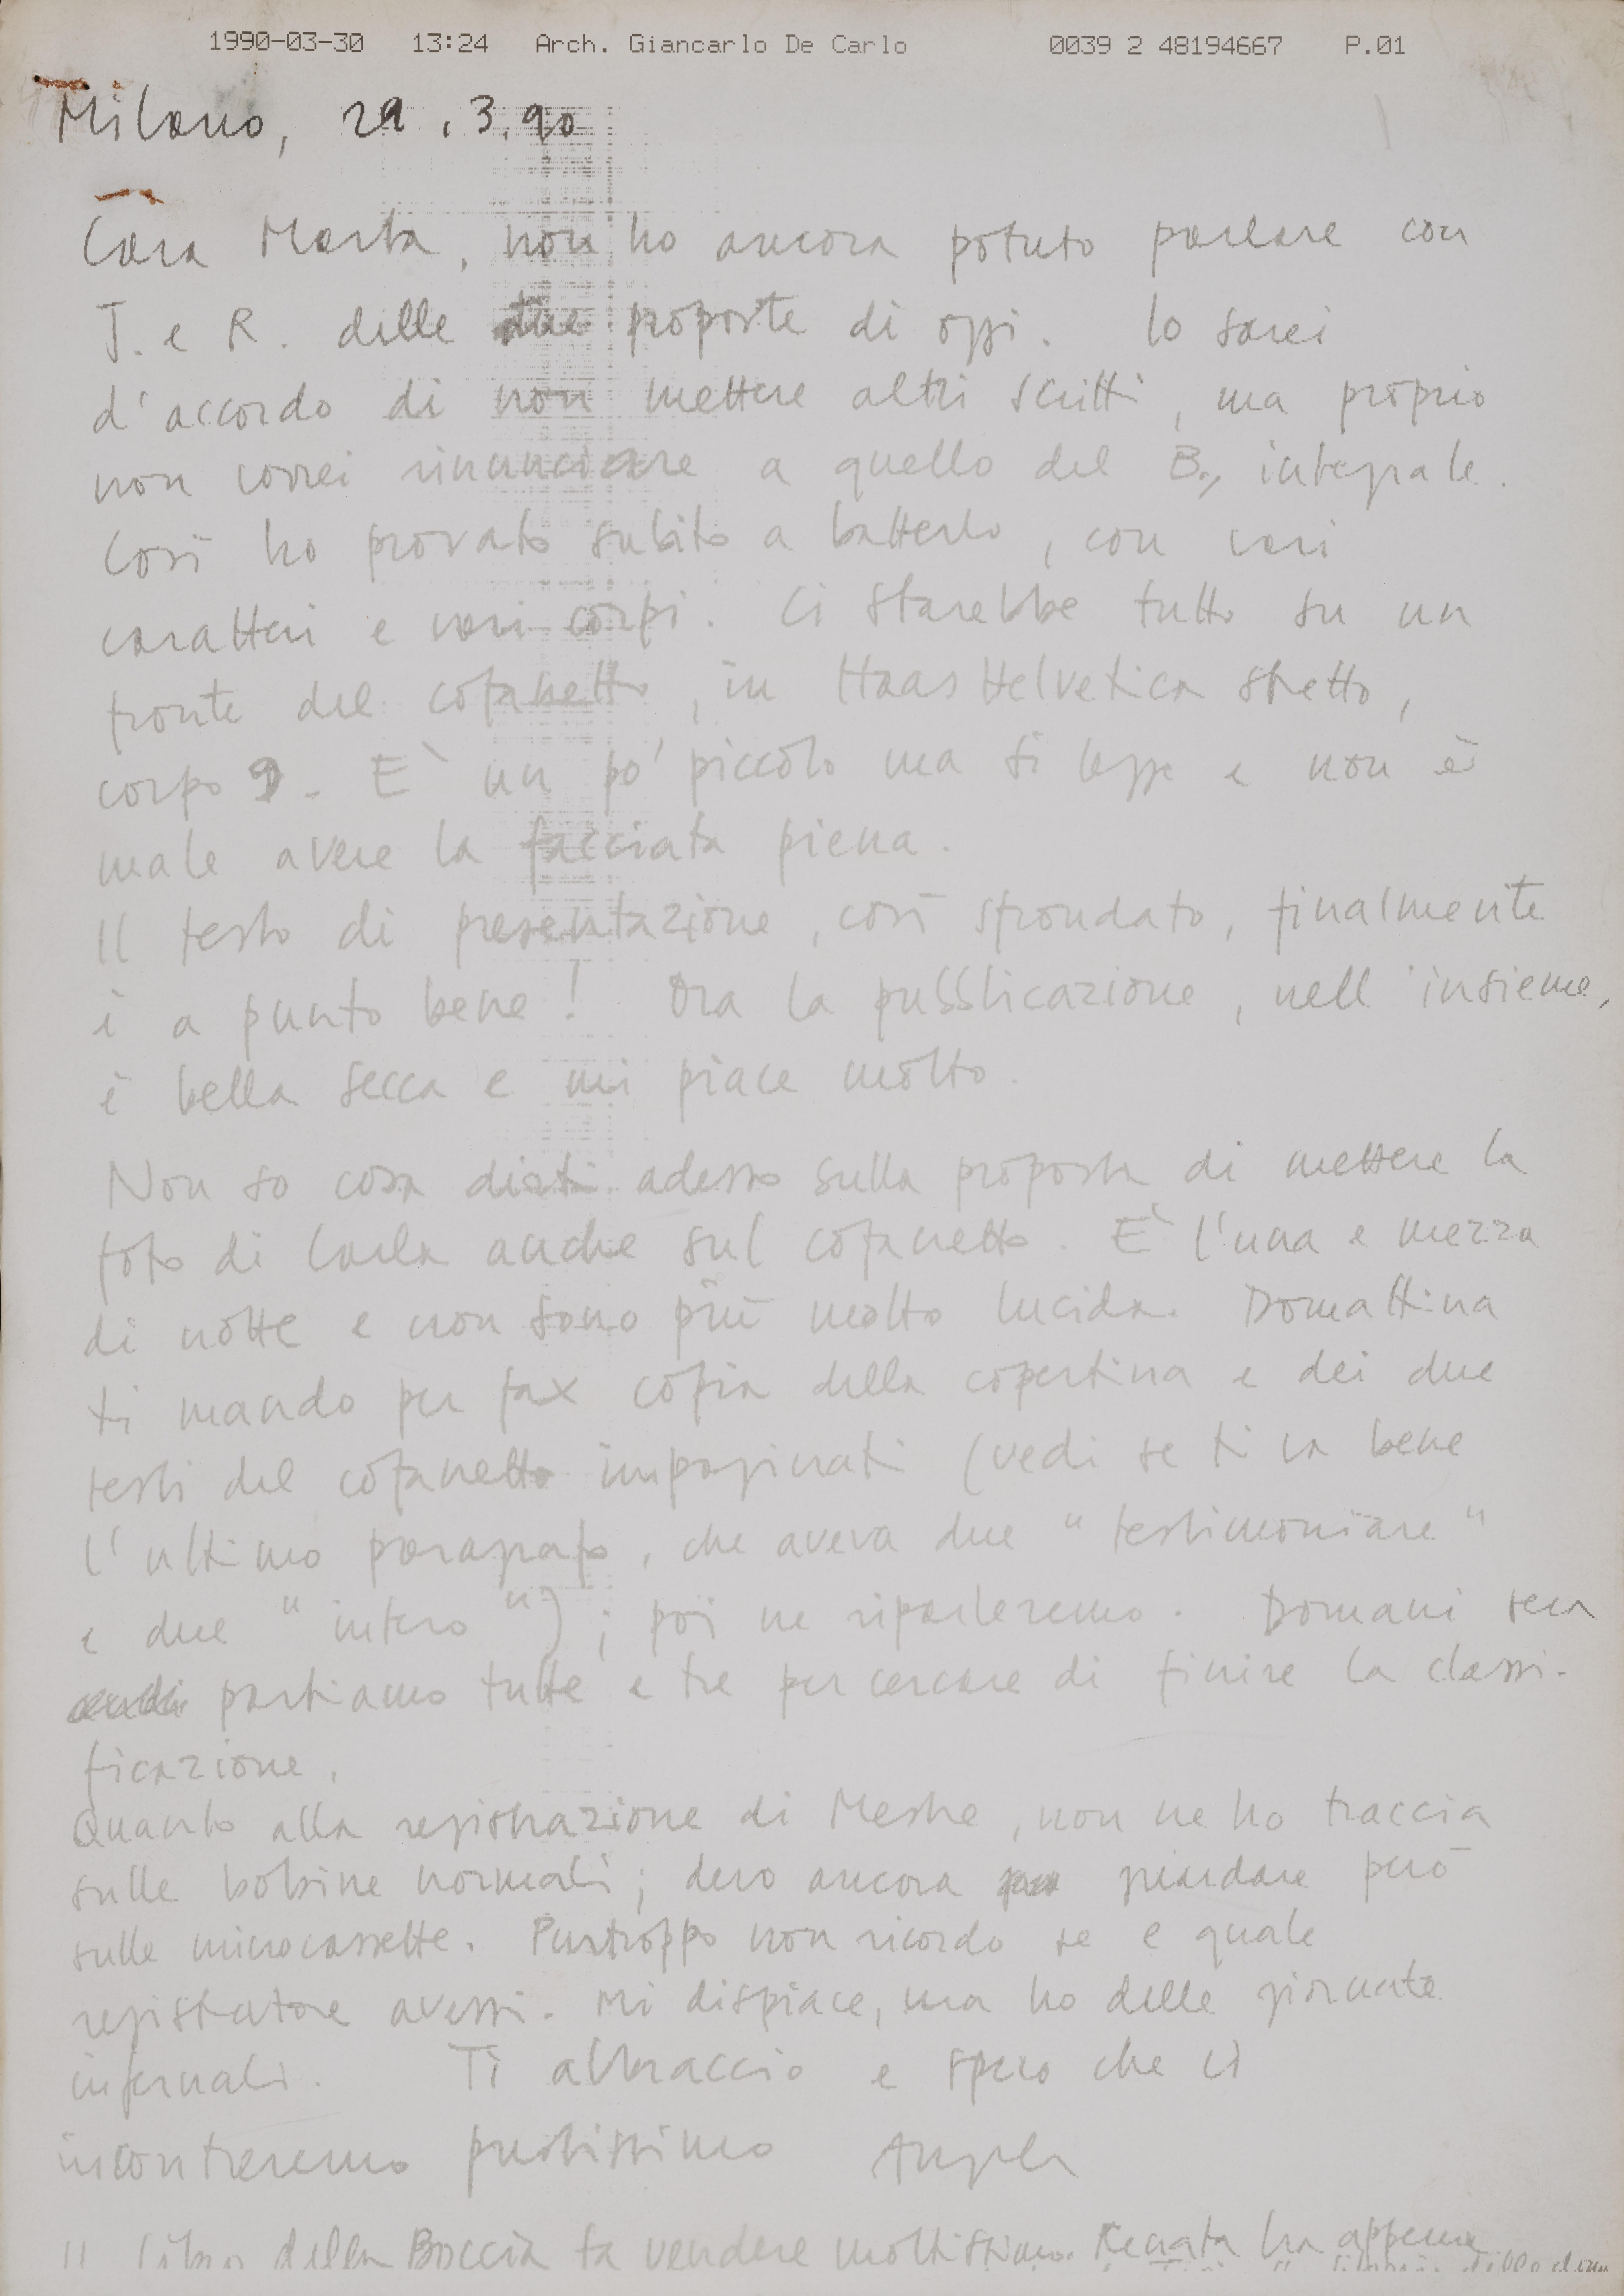 1990-03-30 13:24 Arch. Giancarlo De Carlo 0039 2 48194667 P.01
Milano, 29.3.90
Cara Marta, non ho ancora potuto parlare con
T. e R. delle due proposte di oggi. Io sarei
d'accordo di non mettere altri scritti, ma proprio
non vorrei rinunciare a quello del B., integrale.
Così ho provato subito a batterlo, con vari
caratteri e vari corpi. Ci starebbe tutto su un
fronte del cofanetto, in Haas Helvetica stretto,
corpo 9. E' un po' piccolo ma si legge e non è
male avere la facciata piena.
Il testo di presentazione, così sfrondato, finalmente
è a punto bene! Ora la pubblicazione, nell'insieme,
è bella secca e mi piace molto.
Non so cosa dirti adesso sulla proposta di mettere la
foto di Carla anche sul cofanetto. E' l'una e mezza
di notte e non sono più molto lucida. Domattina
ti mando per fax copia della copertina e dei due
testi del cofanetto impaginati (vedi se ti va bene
l'ultimo paragrafo, che aveva due "testimoniare"
e due "intero"); poi ne riparleremo. Domani sera
partiamo tutte e tre per cercare di finire la classi-
ficazione.
Quanto alla registrazione di Mestre, non ne ho traccia
sulle bobine normali; devo ancora guardare però
sulle microcassette. Purtroppo non ricordo se e quale
registratore avessi. Mi dispiace, ma ho delle giornate
infernali. Ti abbraccio e spero che ci
incontreremo prestissimo Angela
Il libro della Boccia fa vendere moltissimo. Renata ha appena